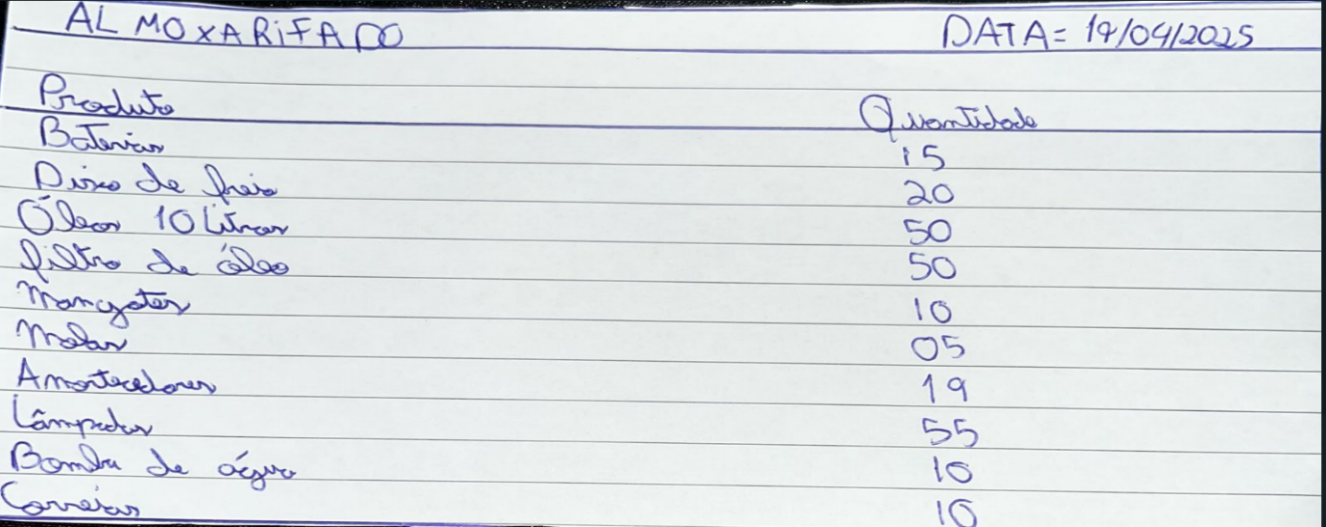 ALMOXARIFADO DATA= 14/04/2025
Produto Quantidade
Baterias 15
Disco de freio 20
Óleos 10 Litros 50
filtro de óleo 50
Mangotes 10
Molas 05
Amortecedores 19
Lâmpadas 55
Bomba de água 10
Correias 10